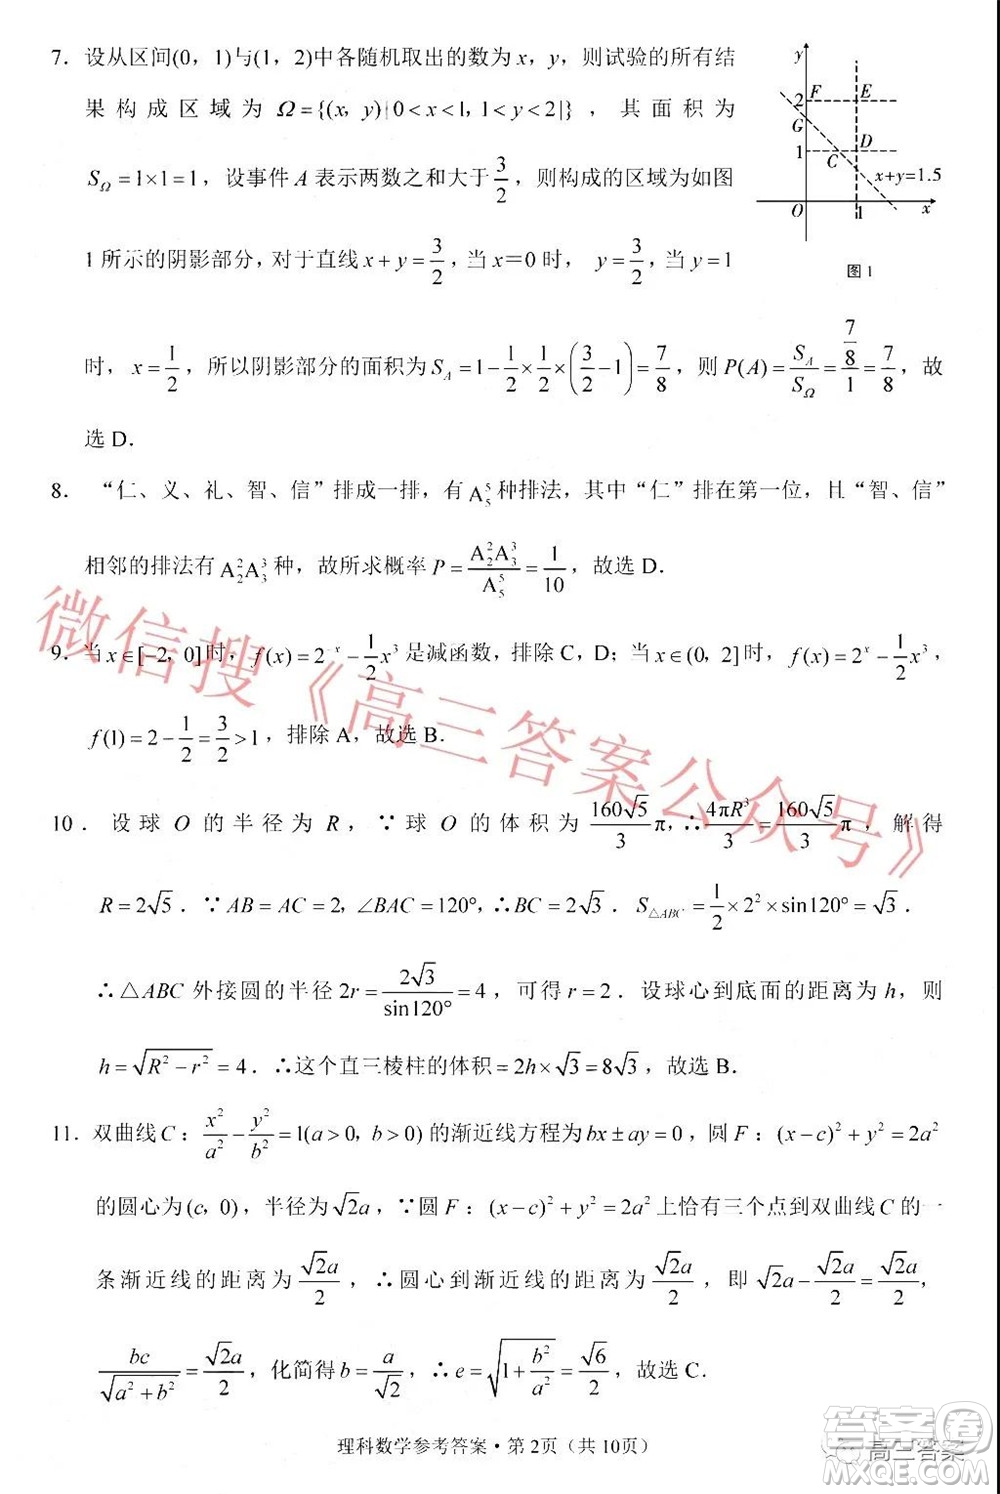 7．设从区间(0，1)与(1，2)中各随机取出的数为 x，y，则试验的所有结
果构成区域为 Ω={(x，y)|0<x<1，1<y<2|}，其面积为
S_Ω=1×1=1，设事件 A 表示两数之和大于 3/2，则构成的区域为如图
1 所示的阴影部分，对于直线 x+y=3/2，当 x=0 时， y=3/2，当 y=1
y
2 F E
G
1 C D
x+y=1.5
O 1 x
图 1
时， x=1/2，所以阴影部分的面积为 S_A=1−1/2×1/2×(3/2−1)=7/8，则 P(A)=S_A/S_Ω=(7/8)/1=7/8，故
选 D．
8． “仁、义、礼、智、信”排成一排，有 A_5^5 种排法，其中“仁”排在第一位，且“智、信”
相邻的排法有 A_2^2A_3^3 种，故所求概率 P=A_2^2A_3^3/A_5^5=1/10，故选 D．
9．当 x∈[−2，0]时，f(x)=2^{-x}−1/2x^3 是减函数，排除 C，D；当 x∈(0，2]时， f(x)=2^x−1/2x^3，
f(1)=2−1/2=3/2>1，排除 A，故选 B．
10．设球 O 的半径为 R，∵球 O 的体积为 160√5/3 π，∴4πR^3/3=160√5/3 π，解得
R=2√5．∵AB=AC=2，∠BAC=120°，∴BC=2√3． S_△ABC=1/2×2^2×sin120°=√3．
∴△ABC 外接圆的半径 2r=2√3/sin120°=4，可得 r=2．设球心到底面的距离为 h，则
h=√(R^2−r^2)=4．∴这个直三棱柱的体积=2h×√3=8√3，故选 B．
11．双曲线 C：x^2/a^2−y^2/b^2=1(a>0，b>0)的渐近线方程为 bx±ay=0，圆 F：(x−c)^2+y^2=2a^2
的圆心为(c，0)，半径为√2a，∵圆 F：(x−c)^2+y^2=2a^2 上恰有三个点到双曲线 C 的一
条渐近线的距离为 √2a/2，∴圆心到渐近线的距离为 √2a/2，即 √2a−√2a/2=√2a/2，
bc/√(a^2+b^2)=√2a/2，化简得 b=a/√2，∴e=√(1+b^2/a^2)=√6/2，故选 C．
理科数学参考答案·第 2页（共 10页）
微信搜《高三答案公众号》
高三答案
答案圈
MXQE.COM